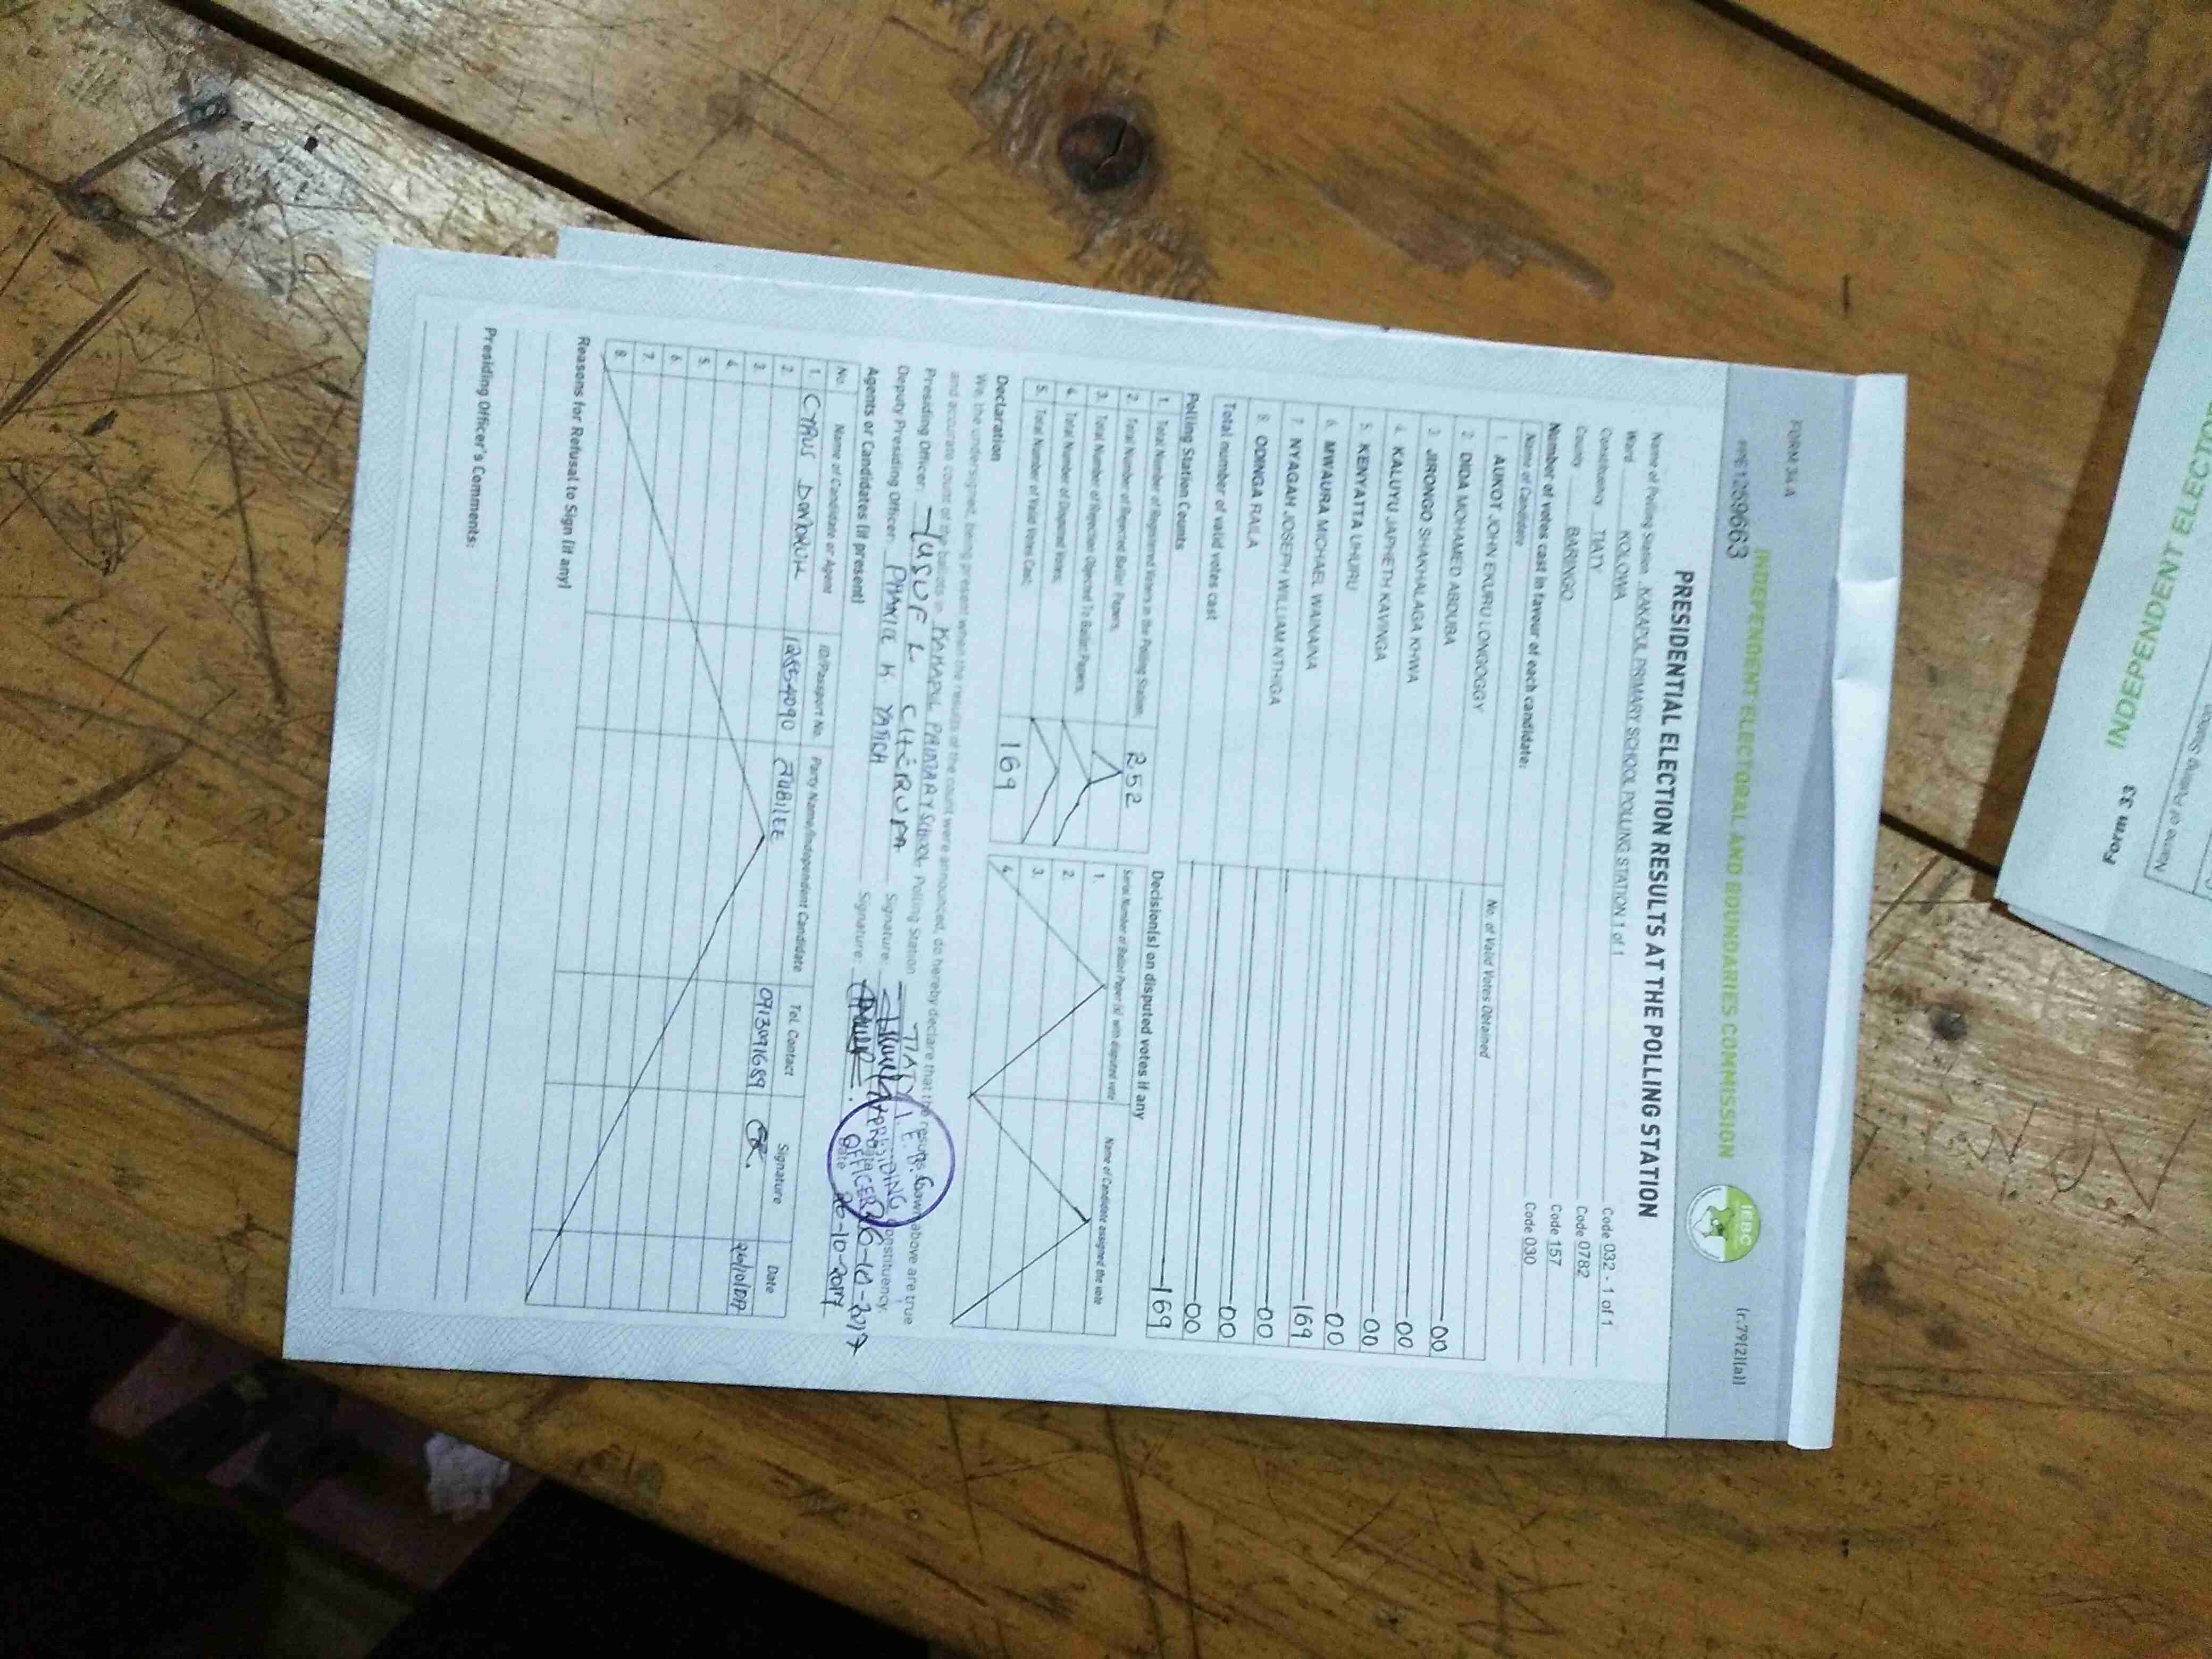 FORM 34 A
(r.79(2)(a))
1259663
INDEPENDENT ELECTORAL AND BOUNDARIES COMMISSION
IEBC
PRESIDENTIAL ELECTION RESULTS AT THE POLLING STATION
Name of Polling Station KAKAPUL PRIMARY SCHOOL POLLING STATION 1 of 1 Code 032 - 1 of 1
Ward KOLOWA Code 0782
Constituency TIATY Code 157
County BARINGO Code 030
Number of votes cast in favour of each candidate:
Name of Candidate No. of Valid Votes Obtained
1. AUKOT JOHN EKURU LONGOGGY 00
2. DIDA MOHAMED ABDUBA 00
3. JIRONGO SHAKHALAGA KHWA 00
4. KALUYU JAPHETH KAVINGA 00
5. KENYATTA UHURU 169
6. MWAURA MICHAEL WAINAINA 00
7. NYAGAH JOSEPH WILLIAM NTHIGA 00
8. ODINGA RAILA 00
Total number of valid votes cast 169
Polling Station Counts
1. Total Number of Registered Voters in the Polling Station: 252
2. Total Number of Rejected Ballot Papers:
3. Total Number of Rejection Objected To Ballot Papers:
4. Total Number of Disputed Votes:
5. Total Number of Valid Votes Cast: 169
Decision(s) on disputed votes if any
Serial Number of Ballot Paper (s) with disputed vote Name of Candidate assigned the vote
1.
2.
3.
4.
Declaration
We, the undersigned, being present when the results of the count were announced, do hereby declare that the results shown above are true
and accurate count of the ballots in KAKAPUL PRIMARY SCHOOL Polling Station TIATY Constituency.
Presiding Officer: YUSUF L. CHERUPA Signature: Date 26-10-2017
Deputy Presiding Officer: PHANICE K YATICH Signature: Date 26-10-2017
I.E.B.C
PRESIDING
OFFICER
Agents or Candidates (if present)
No. Name of Candidate or Agent ID/Passport No. Party Name/Independent Candidate Tel. Contact Signature Date
1. CYRUS 12554090 JUBILEE 0713091689 26/10/017
2.
3.
4.
5.
6.
7.
8.
Reasons for Refusal to Sign (if any)
Presiding Officer's Comments:
Form 33
INDEPENDENT ELECTOR
Name of Polling Station